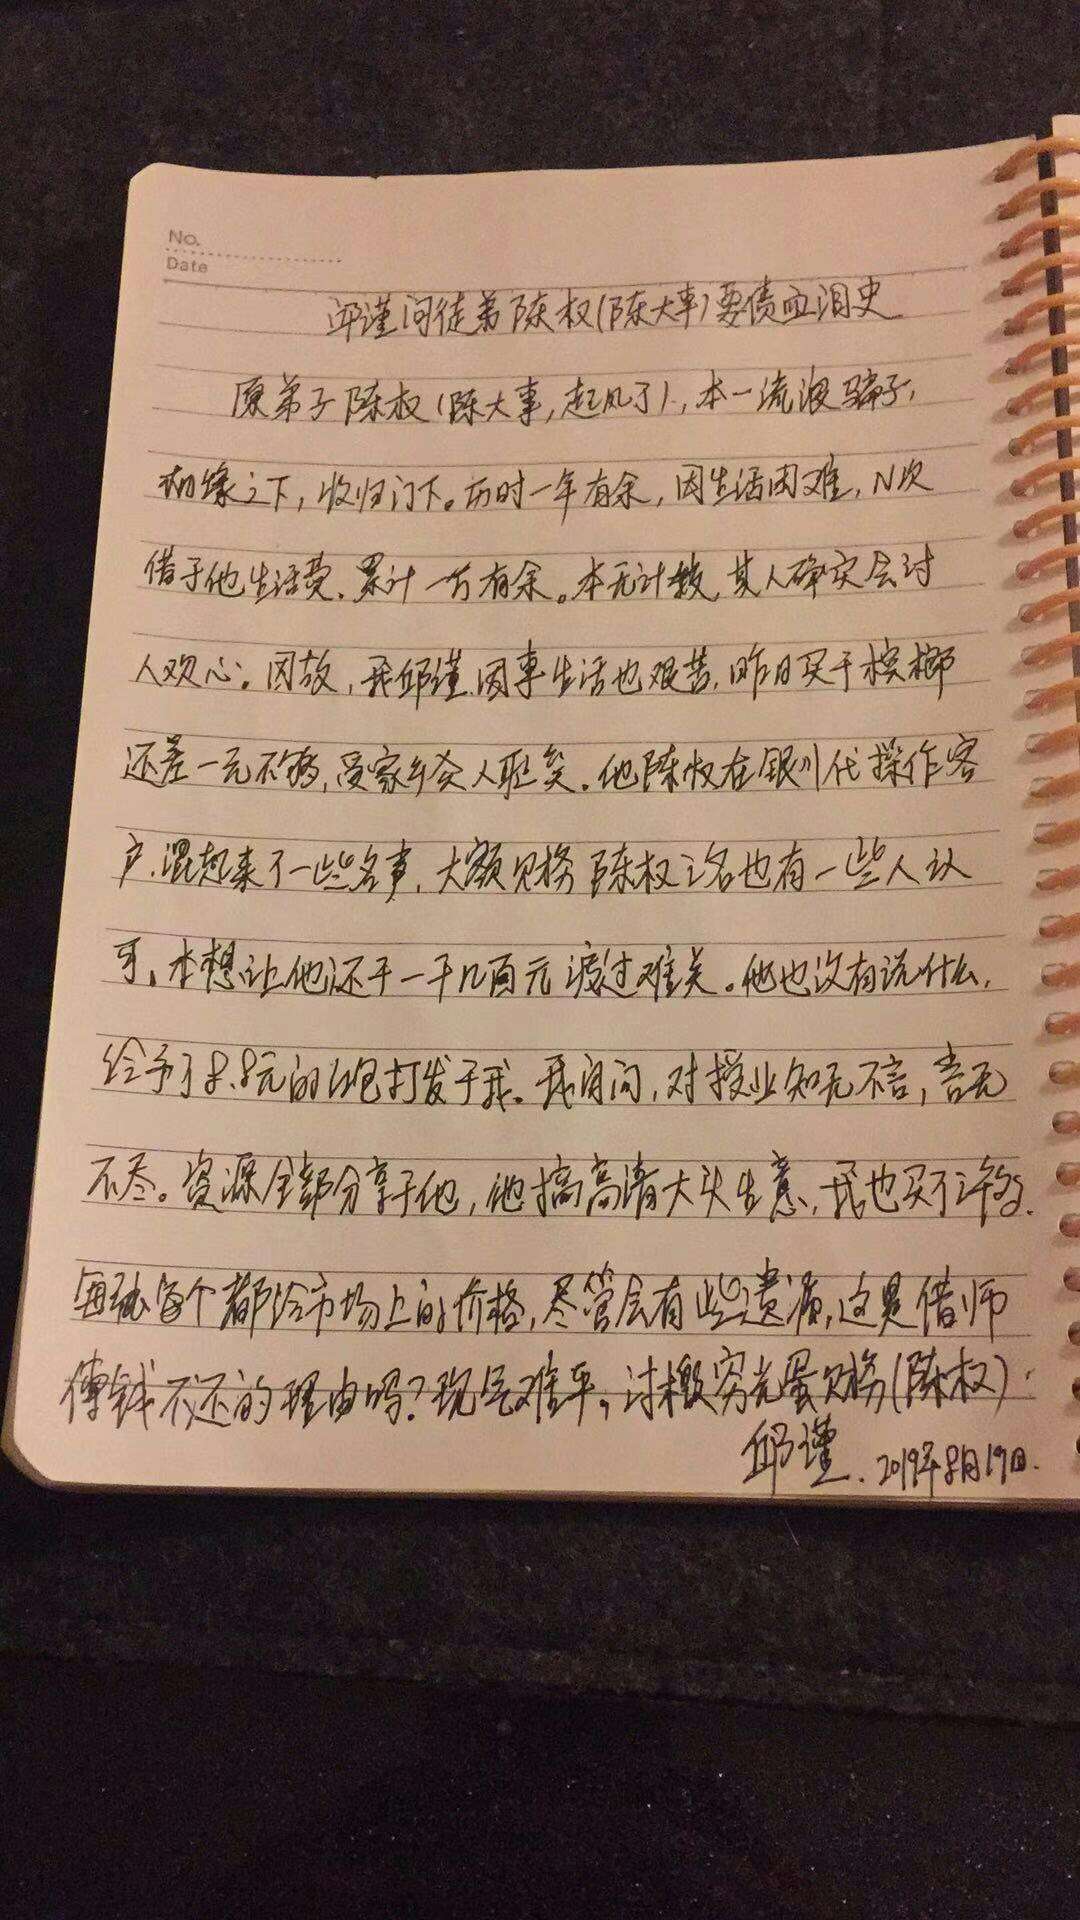 No.
Date
邱谨问徒弟陈权(陈大事)要债血泪史
原弟子陈权(陈大事,起风了),本一流浪骗子,
相缘之下,收归门下。历时一年有余,因生活困难,N次
借于他生活费,累计一万有余。本无计较,其人确实会讨
人欢心。因故,我邱谨因事生活也艰苦,昨日买于槟榔
还差一元不够,受家乡众人耻笑。他陈权在银川代操作客
户,混起来了一些名声,大额财务陈权之名也有一些人认
可,本想让他还于一千几百元渡过难关。他也没有说什么,
给予了8.8元的红包打发于我。我自问,对授业知无不言,言无
不尽。资源全部分享于他,他搞高清大头生意,我也买了许多,
每个都给市场上的价格,尽管会有些遗漏,这是借师
傅钱不还的理由吗?现气难平,讨檄穷光蛋财务(陈权)
邱谨. 2019年8月19日.